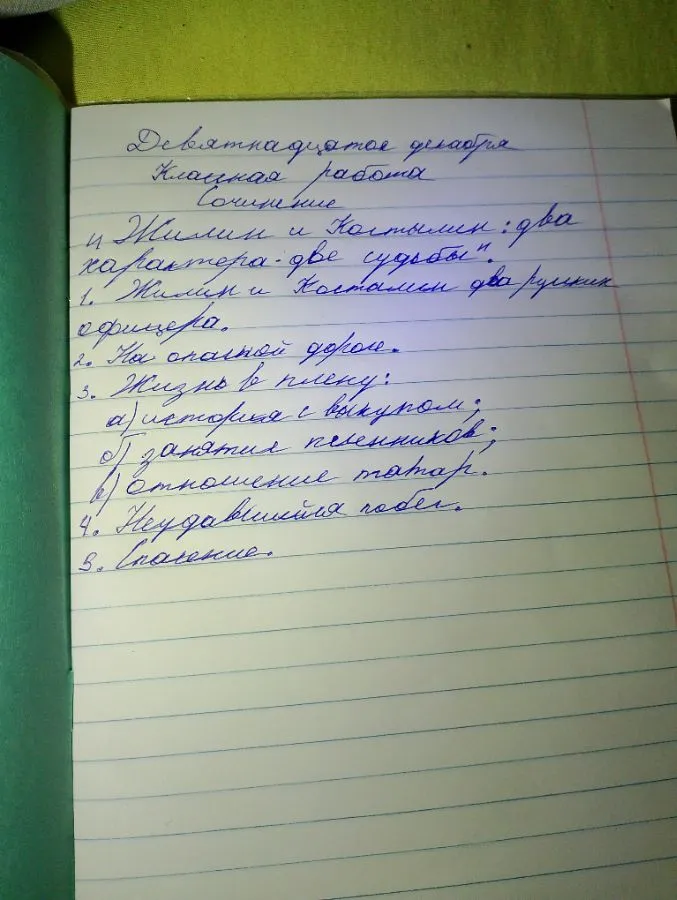 Девятнадцатое декабря
Классная работа
Сочинение
"Жилин и Костылин: два
характера - две судьбы".
1. Жилин и Костылин два русских
офицера.
2. На опасной дороге.
3. Жизнь в плену:
а) история с выкупом;
б) занятия пленников;
в) отношение татар.
4. Неудавшийся побег.
5. Спасение.